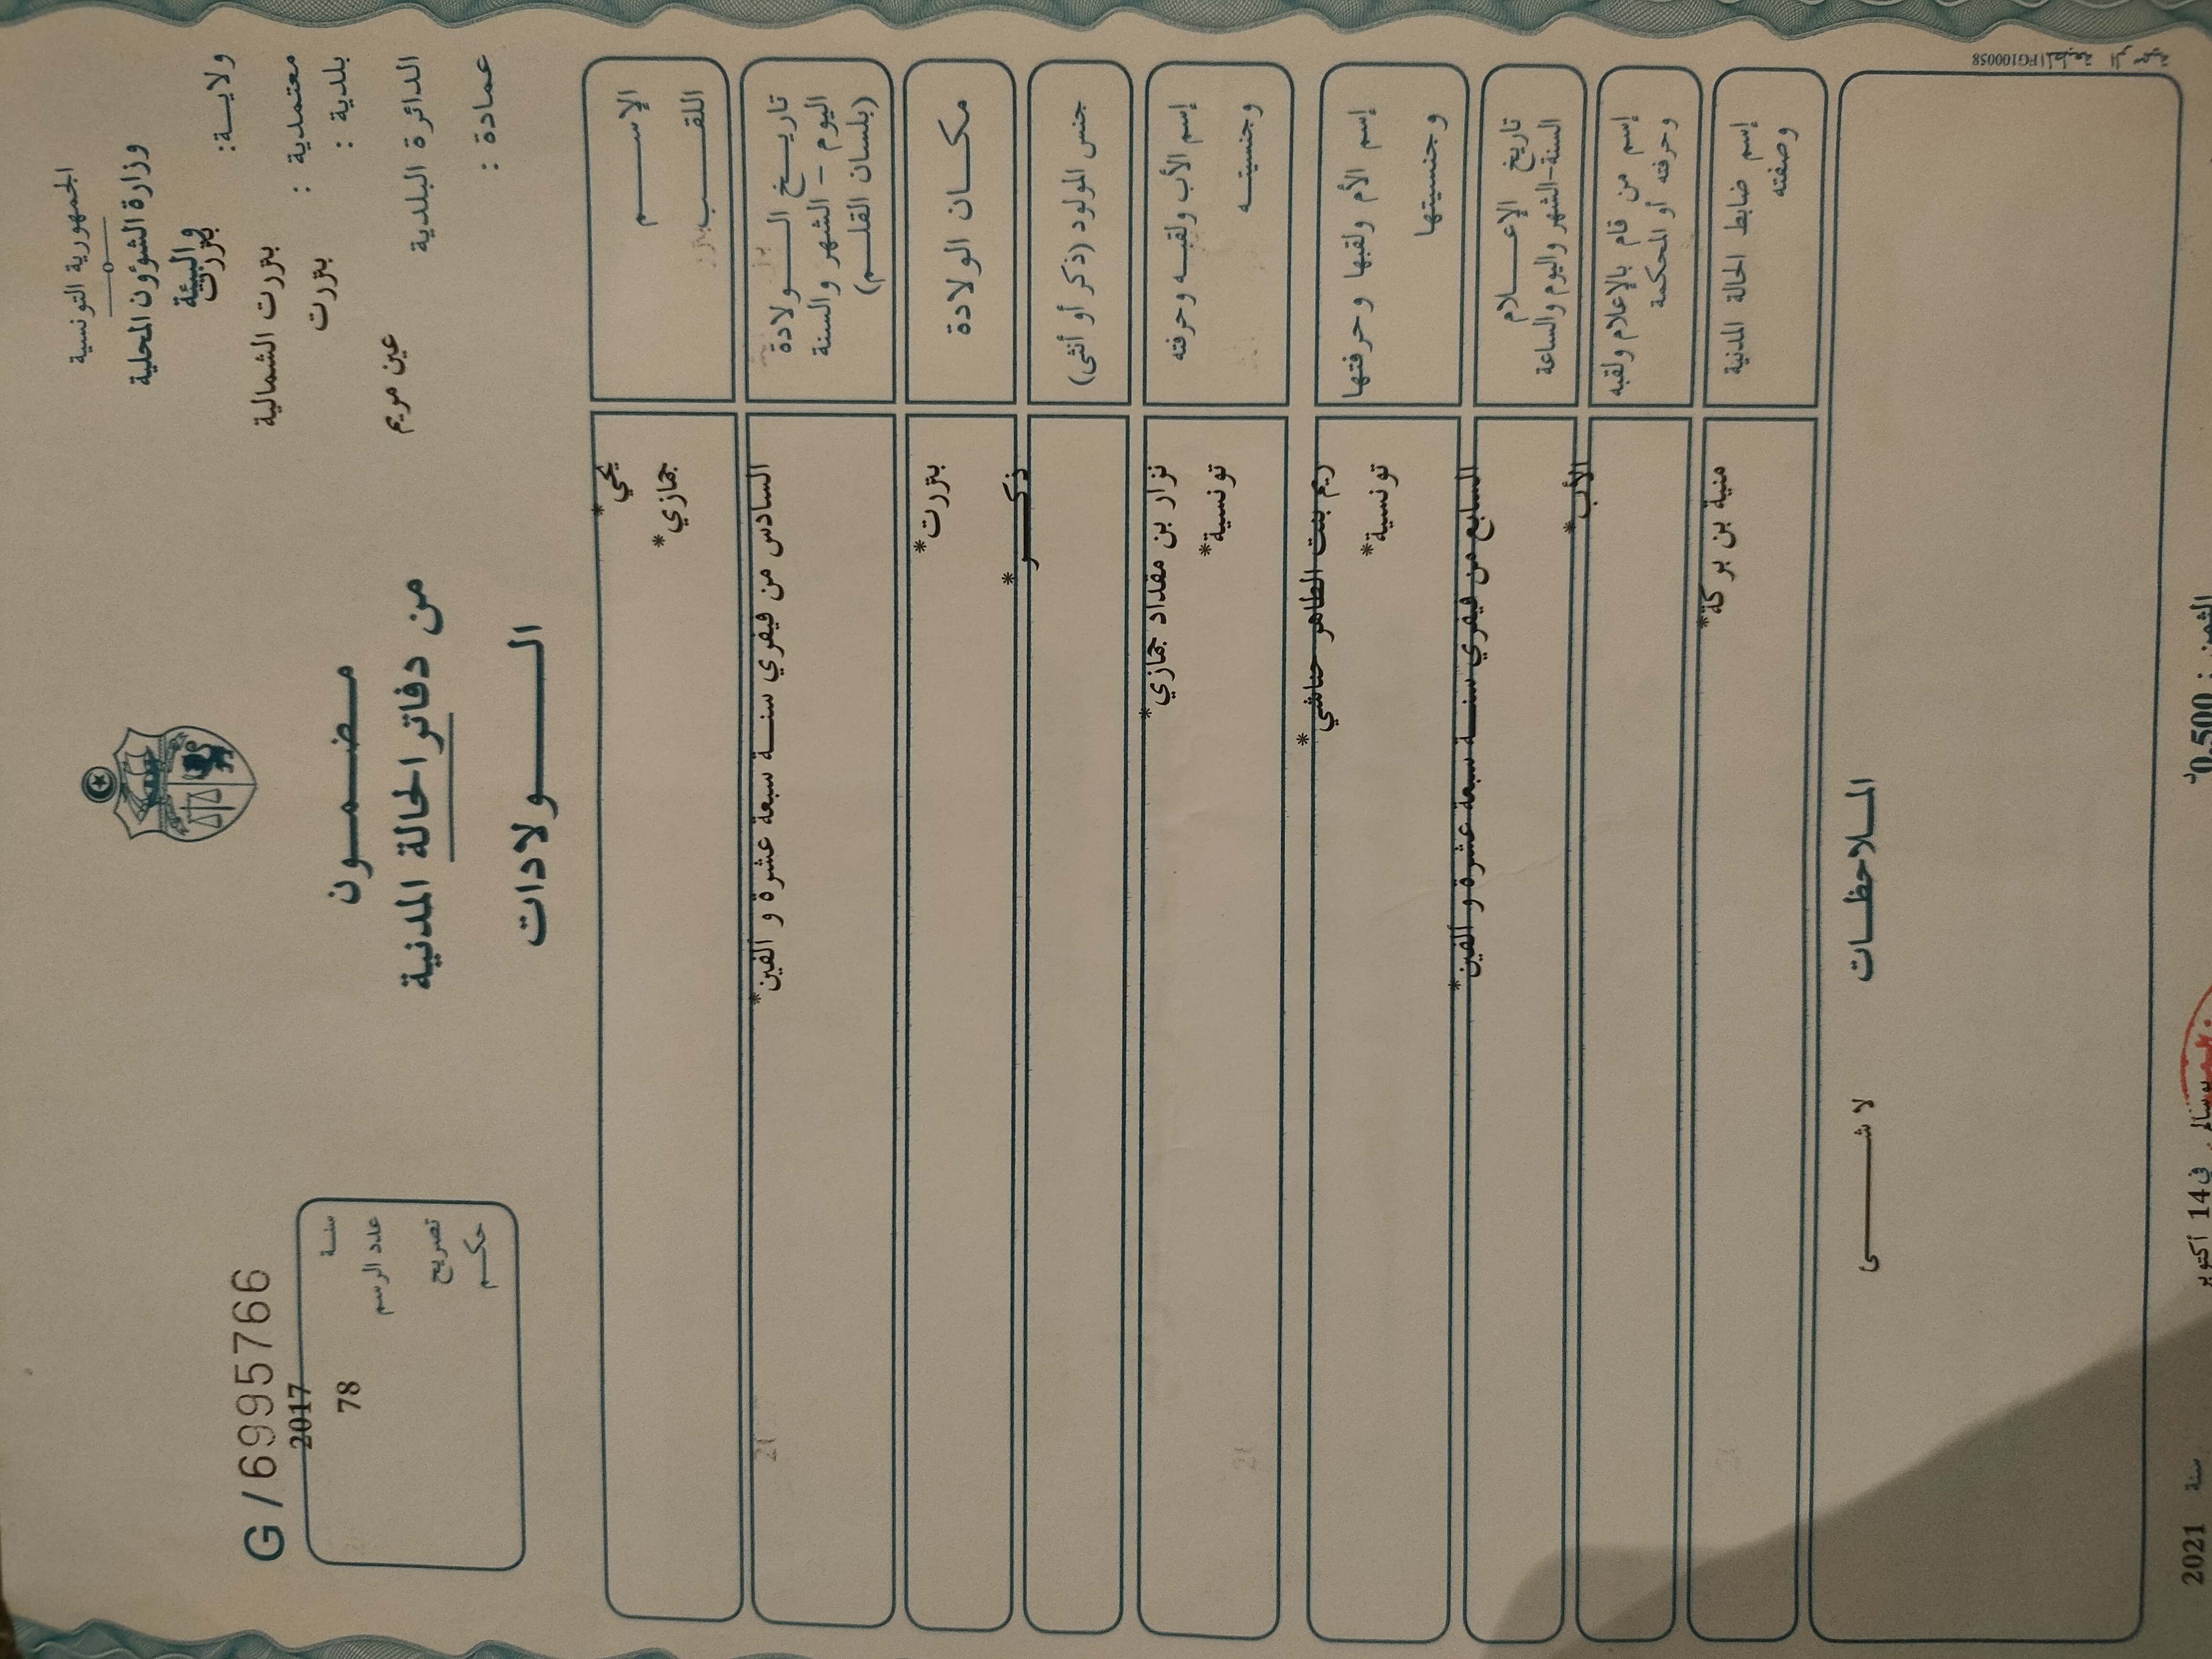 الجمهورية التونسية
وزارة الشؤون المحلية
والبيئة
ولايـــة: بنزرت
معتمدية : بنزرت الشمالية
بلدية : بنزرت
الدائرة البلدية عين مريم
عمادة :
مـــضـــمـــون
من دفاتر الحالة المدنية
الـــــولادات
G/6995766
سنـــة 2017
عدد الرسم 78
تصريح
حكـــم
الإســـــم يحي*
اللقـــــب جمازي*
تاريـــخ الـــــولادة السادس من فيفري سنـــة سبعة عشرة و ألفين*
اليوم - الشهر والسنة
(بلسان القلـــم)
مكـــان الولادة بنزرت*
جنس المولود (ذكر أو أنثى) ذكـــــر*
إسم الأب ولقبـــه وحرفته نزار بن مقداد جمازي*
وجنسيتـــه تونسية*
إسم الأم ولقبها وحرفتها ريم بنت الطاهر حناشي*
وجنسيتها تونسية*
تاريخ الإعـــــلام السابع من فيفري سنـــة سبعة عشرة و ألفين*
السنة-الشهر واليوم والساعة
إسم من قام بالإعلام ولقبه الأب*
وحرفته أو المحكمة
إسم ضابط الحالة المدنية منية بن بركة*
وصفته
المـــلاحظـــات
لا شـــــــى
الثمن : 0,500د
في 14 أكتوبر
سنة 2021